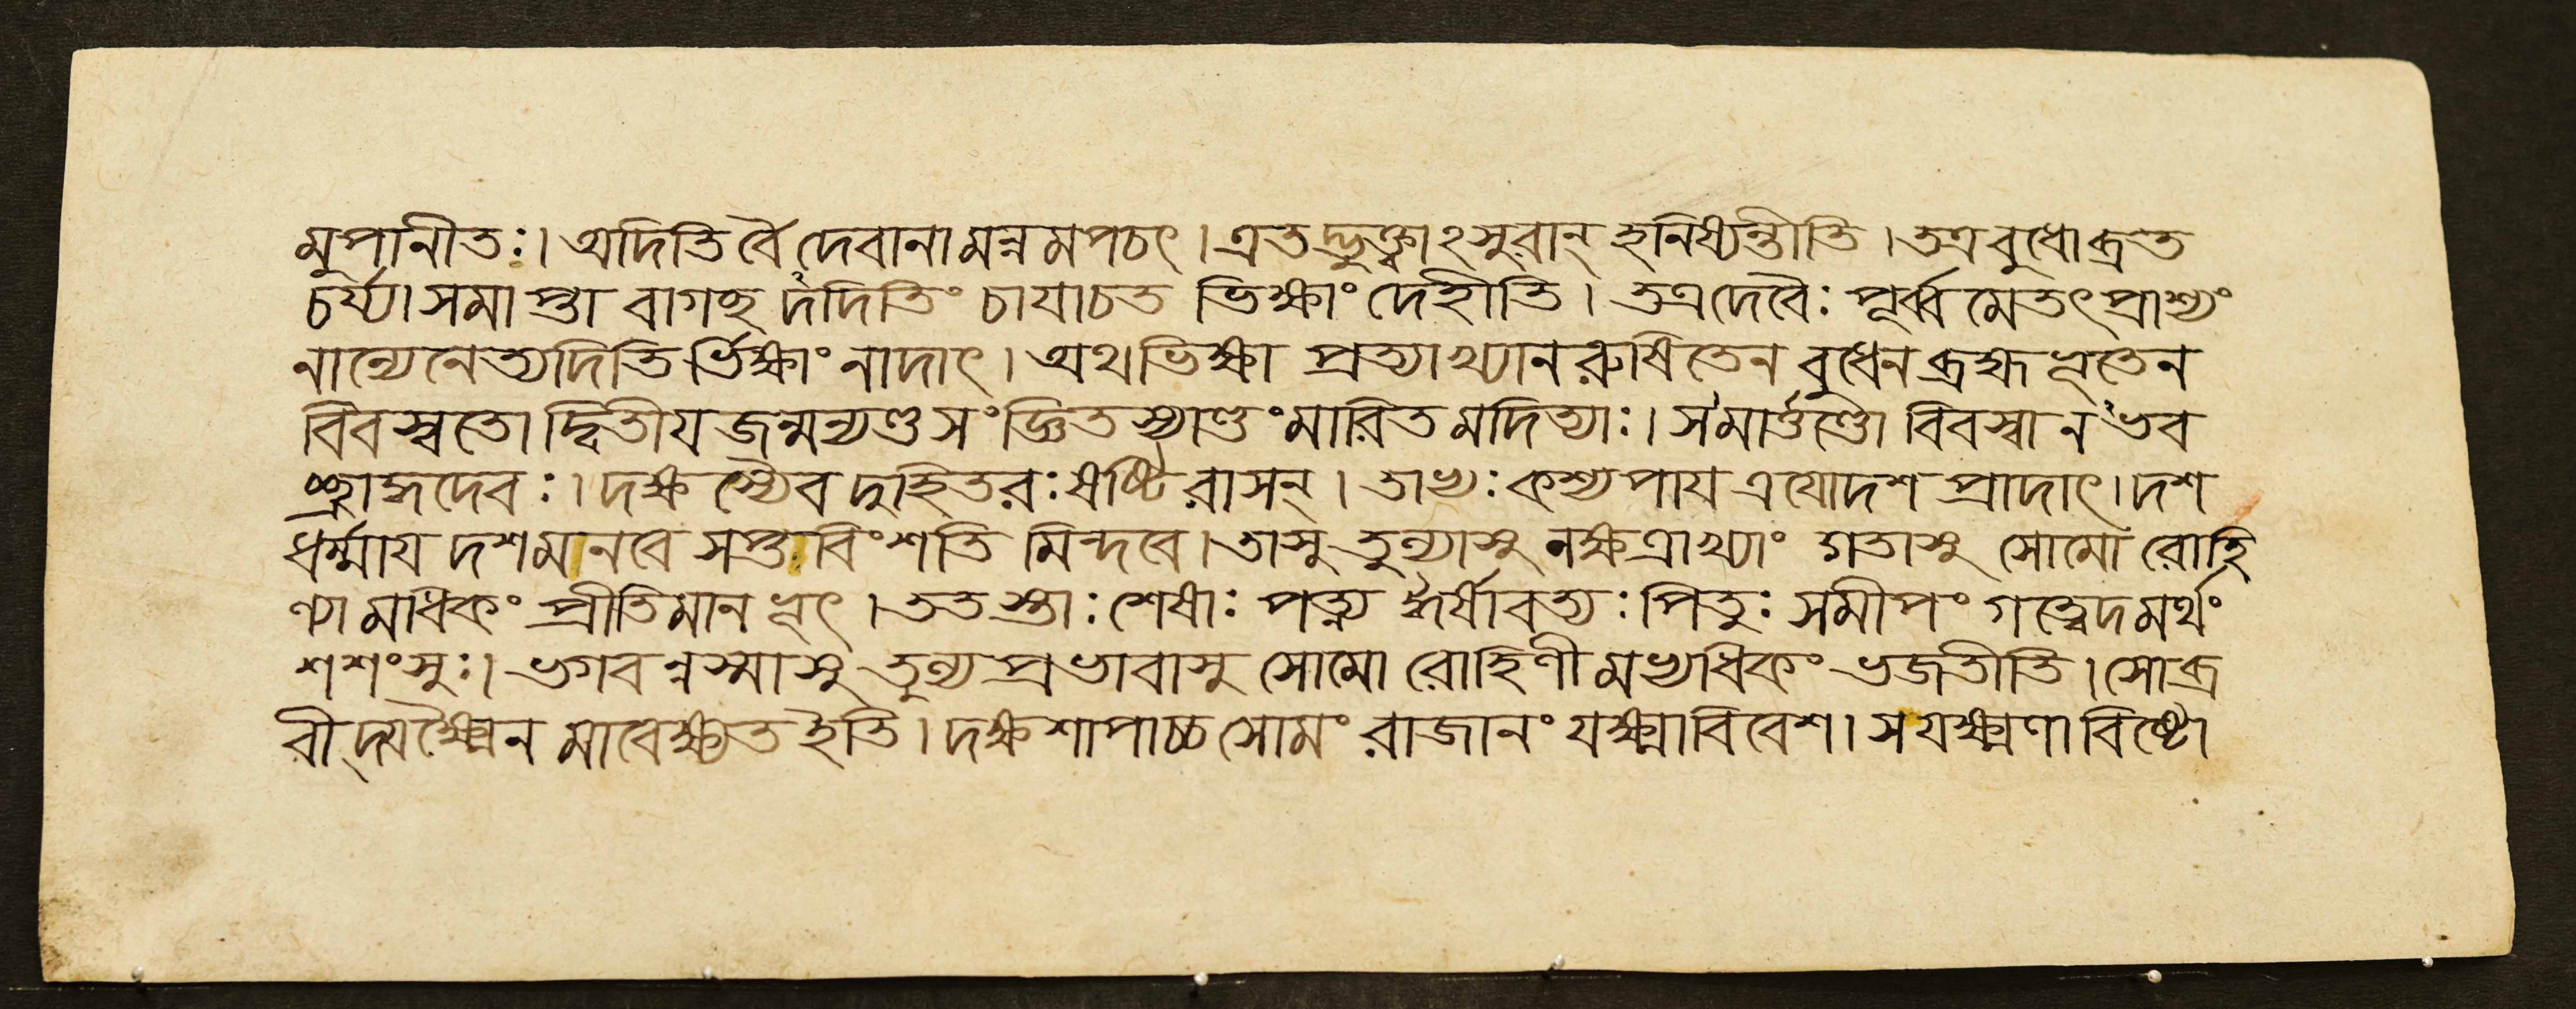 মুপানীতঃ। অদিতির্বৈ দেবানামন্নমপচৎ। এতদ্ভুক্ত্বাঽসুরান্ হনিষ্যন্তীতি। তত্র বুধো ব্রত
চর্য্যা সমাপ্তা বাগচ্ছদদিতিং চাযাচত ভিক্ষাং দেহীতি। তত্র দেবৈঃ পূর্ব্বমেতৎ প্রাশ্যং
নান্যেনেত্যদিতির্ভিক্ষাং নাদাৎ। অথ ভিক্ষা প্রত্যাখ্যানরুষিতেন বুধেন ব্রহ্মভূতেন
বিবস্বতো দ্বিতীয জন্মন্যণ্ডসংজ্ঞিতস্যাণ্ডং মারিতমদিত্যাঃ। স মার্ত্তণ্ডো বিবস্বানভব
চ্ছ্রাদ্ধদেবঃ। দক্ষস্যৈব দুহিতরঃ ষষ্টিরাসন্। তাভ্যঃ কশ্যপায ত্রযোদশ প্রাদাৎ। দশ
ধর্ম্মায দশ মনবে সপ্তবিংশতিমিন্দবে। তাসু তুল্যাসু নক্ষত্রাখ্যাং গতাসু সোমো রোহি
ণ্যামধিকং প্রীতিমানভূৎ। ততস্তাঃ শেষাঃ পত্ন্য ঈর্ষাবত্যঃ পিতুঃ সমীপং গত্বেদমর্থং
শশংসুঃ। ভগবন্নস্মাসু তুল্যপ্রভাবাসু সোমো রোহিণীমভ্যধিকং ভজতীতি। সোব্র
বীদ্যক্ষ্মৈনমাবেক্ষ্যত ইতি। দক্ষশাপাচ্চ সোমং রাজানং যক্ষ্মাবিবেশ। স যক্ষ্মণাবিষ্টো